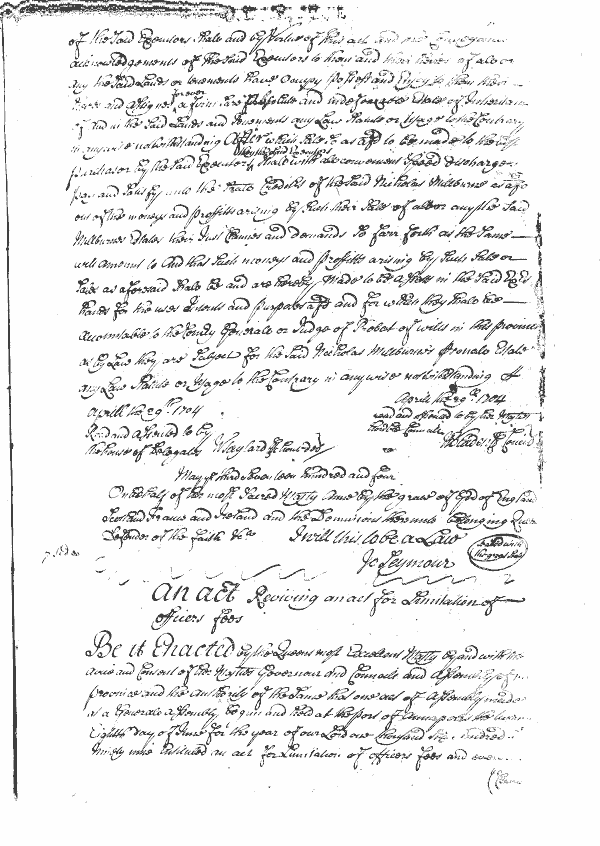 of the said Executors shall and by Virtue of this act and
acknowledgements of the said Executors to them and their heires of all or
any the said Lands or tenements have Occupy possess and Enjoy to them their
heires and assignes for ever a firm sure absolute and indefeazible Estate of Inheritance
of and in the said Lands and tenements any Law Statute or Usage to the Contrary
in anywise notwithstanding After which sale so as afd to be made to the
purchaser by the said Executors they the said Executors shall with all convenient speed discharge
pay and satisfy unto the Creditors of the said Nicholas Milburne as afd
out of the moneys and proffitts arising by such their sale of all or any the said
Milburnes Estates their Just Claimes and demands so farr forth as the same
will amount to And that such moneys and proffitts arising by such sale or
sales as aforesaid shall be and are hereby made to be assetts in the said Exrs
hands for the uses intents and purposes afd and for which they shall be
accomtable to the Comisy Generale or Judge of Probat of wills in this province
as by Law they are subject for the said Nicholas Milburne's personall Estate
any Law Statute or Usage to the Contrary in any wise notwithstanding
Aprill the 29th 1704
Aprill the 29th 1704
read and assented to by her Majtys
honble Councill
Read and assented to by
the house of Delegates W Taylard Cl house del
W Bladen Cl Council
May ye third seventeen hundred and four
On behalf of the most sacred Majty Anne by the grace of God of England
Scotland France and Ireland and the Dominions thereunto belonging Queen
Defender of the Faith &ca I will this to be a Law
Jo Seymour
Sealed with
the great Seal
An act Reviving an act for Limitation of
officers fees
Be it Enacted by the Queens most Excellent Majty by and with the
advice and Consent of her Majtys Governour and Councill and Assembly of
province and the authority of the same that one act of Assembly made
at a Generale assembly begun and held at the port of Annapolis the
Eighth day of June for the year of our Lord one thousand six hundred
ninety nine Intituled an act for Limitation of officers fees and every